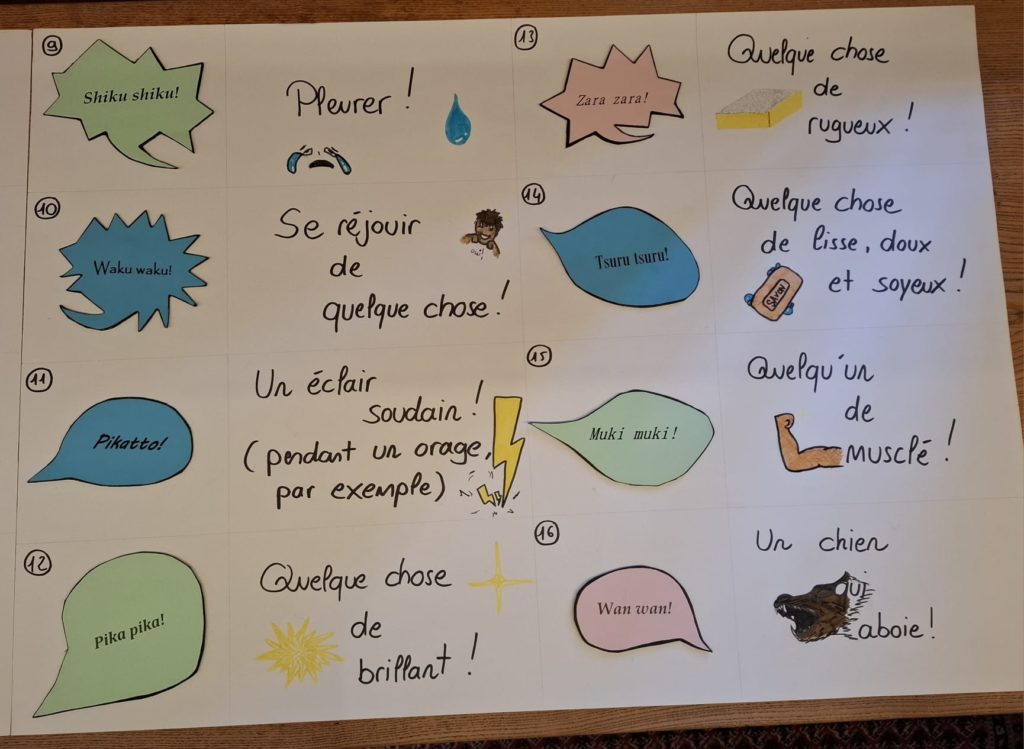 9
Shiku shiku!
Pleurer !
10
Waku waku!
Se réjouir
oui!
de
quelque chose !
11
Pikatto!
Un éclair
soudain !
(pendant un orage,
par exemple)
12
Pika pika!
Quelque chose
de
brillant !
13
Zara zara!
Quelque chose
de
rugueux !
14
Tsuru tsuru!
Quelque chose
de lisse, doux
SAVON
et soyeux !
15
Muki muki!
Quelqu'un
de
musclé !
16
Wan wan!
Un chien
qui
aboie !